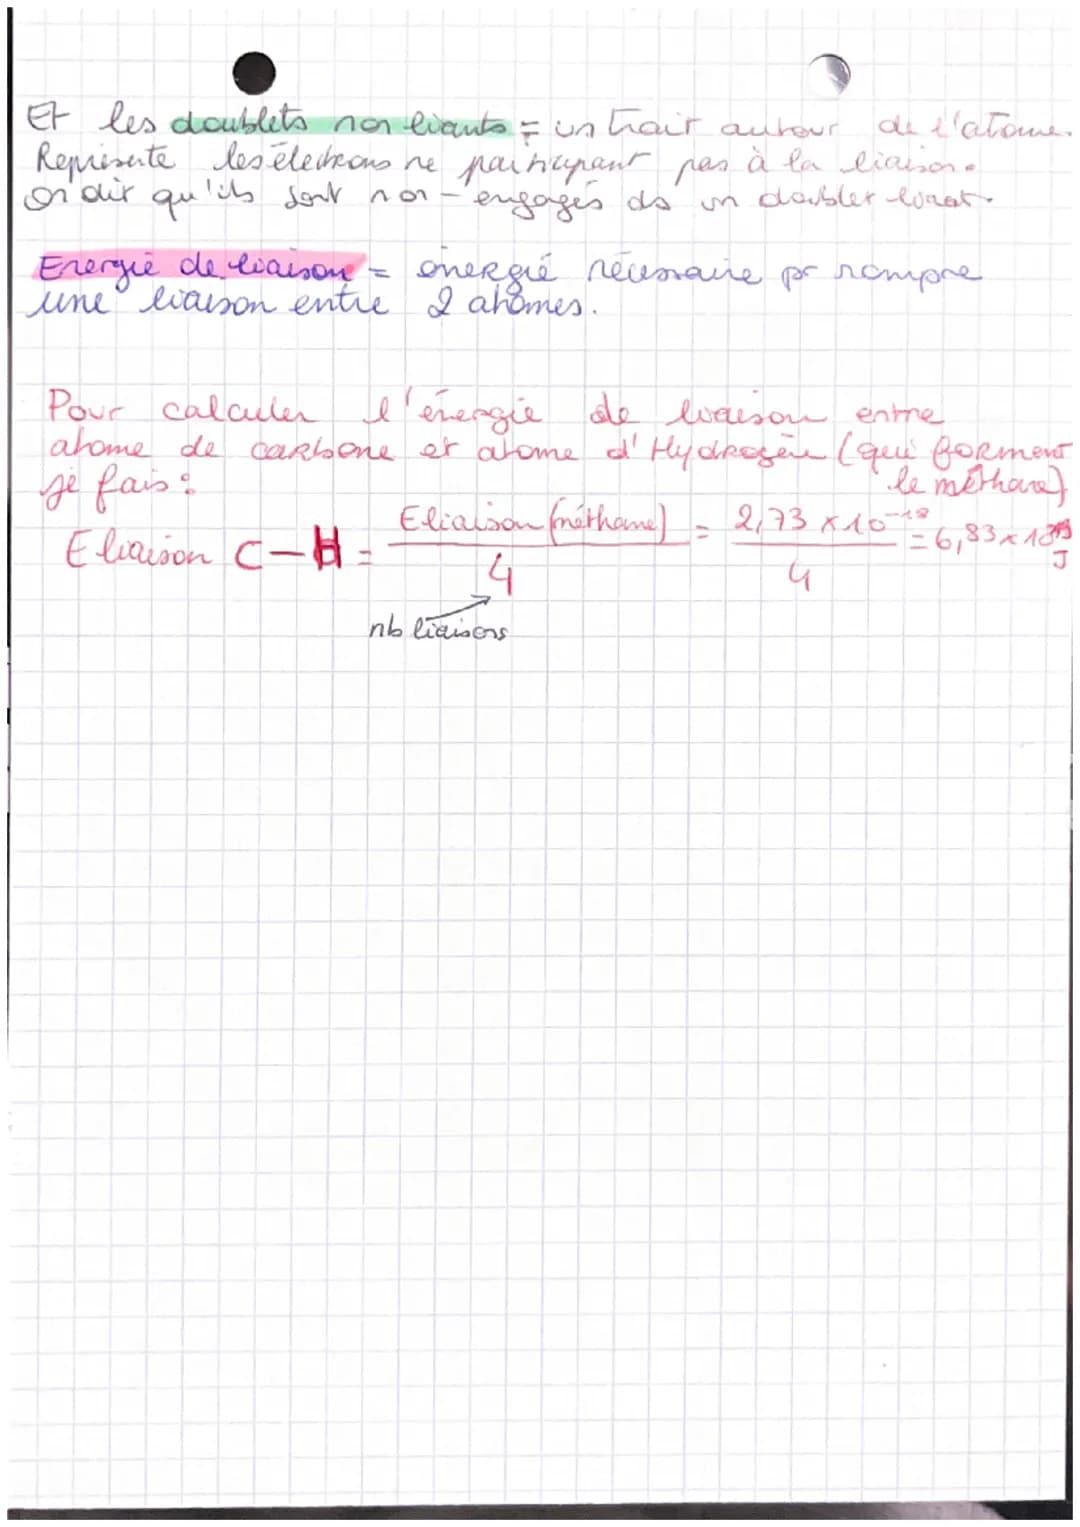 Et les doublets non liants = un trait autour de l'atome.
Représente les électrons ne participant pas à la liaison.
on dit qu'ils sont non-engagés ds un doublet liant.
Energie de liaison = énergie nécessaire pr rompre
une liaison entre 2 atomes.
Pour calculer l'énergie de liaison entre
atome de carbone et atome d'Hydrogène (qui forment
je fais : le méthane)
E liaison C-H = E liaison (méthane) / 4 = 2,73 x 10⁻¹⁸ / 4 = 6,83 x 10⁻¹⁹ J
nb liaisons